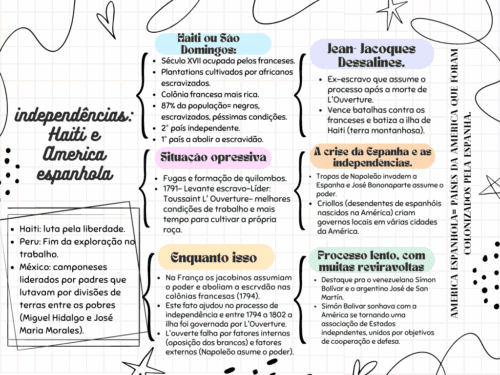 independências:
Haiti e
America
espanhola
Haiti: luta pela liberdade.
Peru: Fim da exploração no
trabalho.
México: camponeses
liderados por padres que
lutavam por divisões de
terras entre os pobres
(Miguel Hidalgo e José
Maria Morales).
Haiti ou São
Domingos:
Século XVII ocupada pelos franceses.
Plantations cultivados por africanos
escravizados.
Colônia francesa mais rica.
87% da população= negros,
escravizados, péssimas condições.
2° país independente.
1° país a abolir a escravidão.
Situação opressiva
Fugas e formação de quilombos.
1791- Levante escravo-Líder:
Toussaint L' Ouverture- melhores
condições de trabalho e mais
tempo para cultivar a própria
roça.
Enquanto isso
Na França os jacobinos assumiam
o poder e aboliam a escrvdão nas
colônias francesas (1794).
Este fato ajudou no processo de
independência e entre 1794 a 1802 a
ilha foi governada por L'Ouverture.
L'ouverte falha por fatores internos
(oposição dos brancos) e fatores
externos (Napoleão asume o poder).
Jean- Jacoques
Dessalines.
Ex-escravo que assume o
processo após a morte de
L'Ouverture.
Vence batalhas contra os
franceses e batiza a ilha de
Haiti (terra montanhosa).
A crise da Espanha e as
independências.
Tropas de Napoleão invadem a
Espanha e José Bononaparte assume o
poder.
Criollos (desendentes de espanhóis
nascidos na América) criam
governos locais em várias cidades
da América.
Processo lento, com
muitas reviravoltas
Destaque pra o venezuelano Símon
Bolívar e o argentino José de San
Martín.
Simón Bolívar sonhava com a
América se tornando uma
associação de Estados
indepndentes, unidos por objetivos
de cooperação e defesa.
AMERICA ESPANHOLA= PAISES DA AMERICA QUE FORAM
COLONIZADOS PELA ESPANHA.